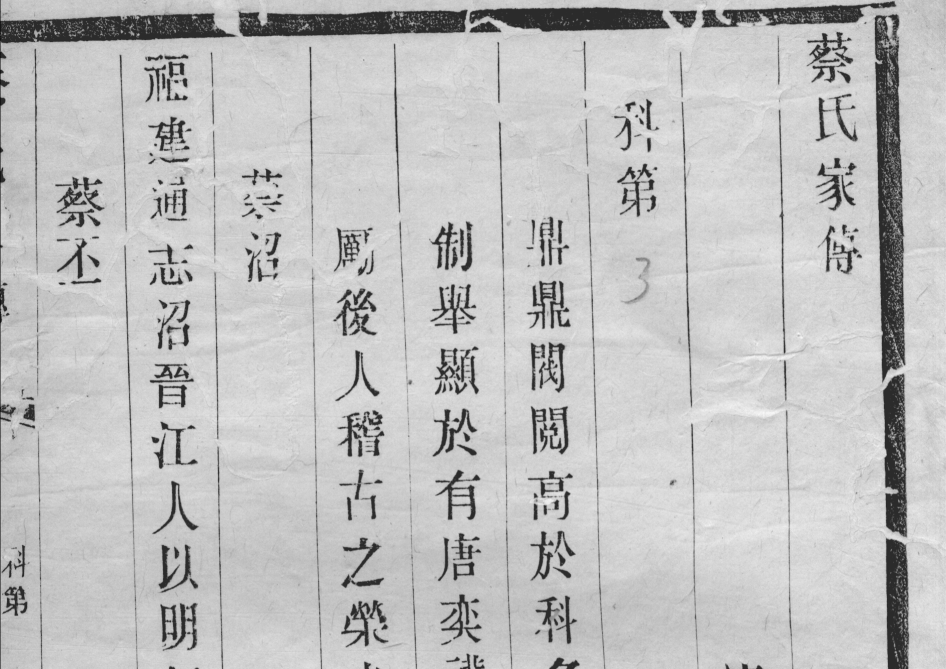 蔡氏家傳
科第
3
鼎鼎閥閱高於科名
制舉顯於有唐奕
厲後人稽古之榮
蔡沼
福建通志沼晉江人以明
蔡丕
科第